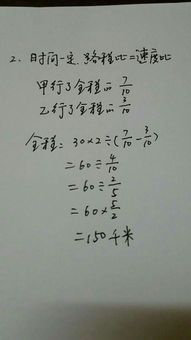 2. 时间一定,路程比=速度比
甲行了全程的 7/10
乙行了全程的 3/10
全程: 30×2÷(7/10-3/10)
=60÷4/10
=60÷2/5
=60×5/2
=150千米